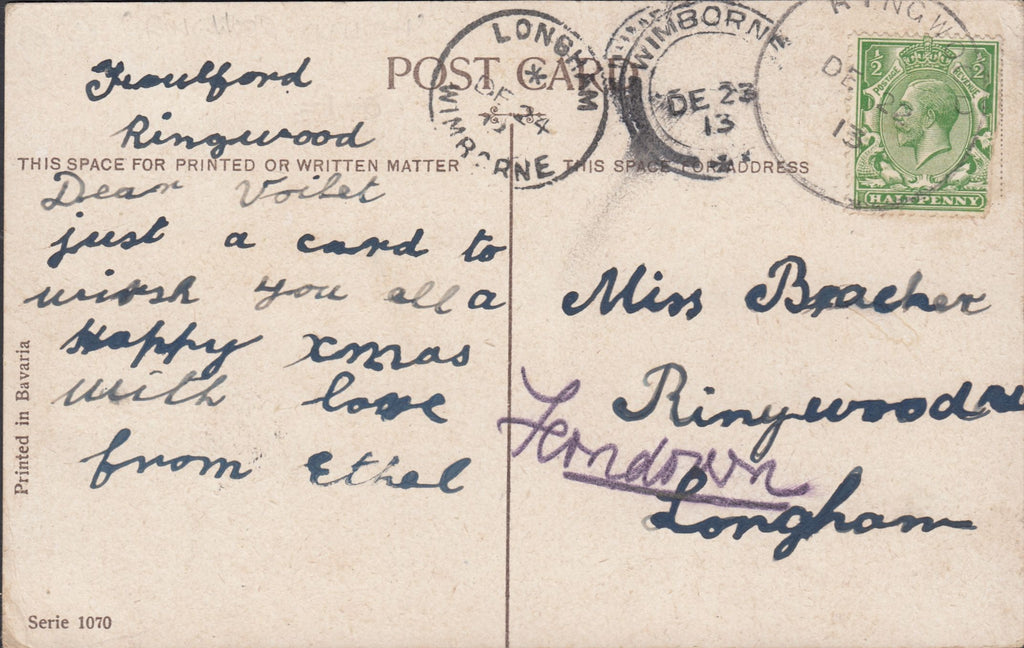 POST CARD
LONGHAM
WIMBORNE
DE 24
WIMBORNE
DE 23
13
RINGW
DE
13
½ ½
POSTAGE REVENUE
HALFPENNY
Ringwood
THIS SPACE FOR PRINTED OR WRITTEN MATTER
THIS SPACE FOR ADDRESS
Dear Voilet
just a card to
wirsh you all a
Happy xmas
with love
from Ethel
Miss Bracher
Ringwood
Longham
Printed in Bavaria
Serie 1070